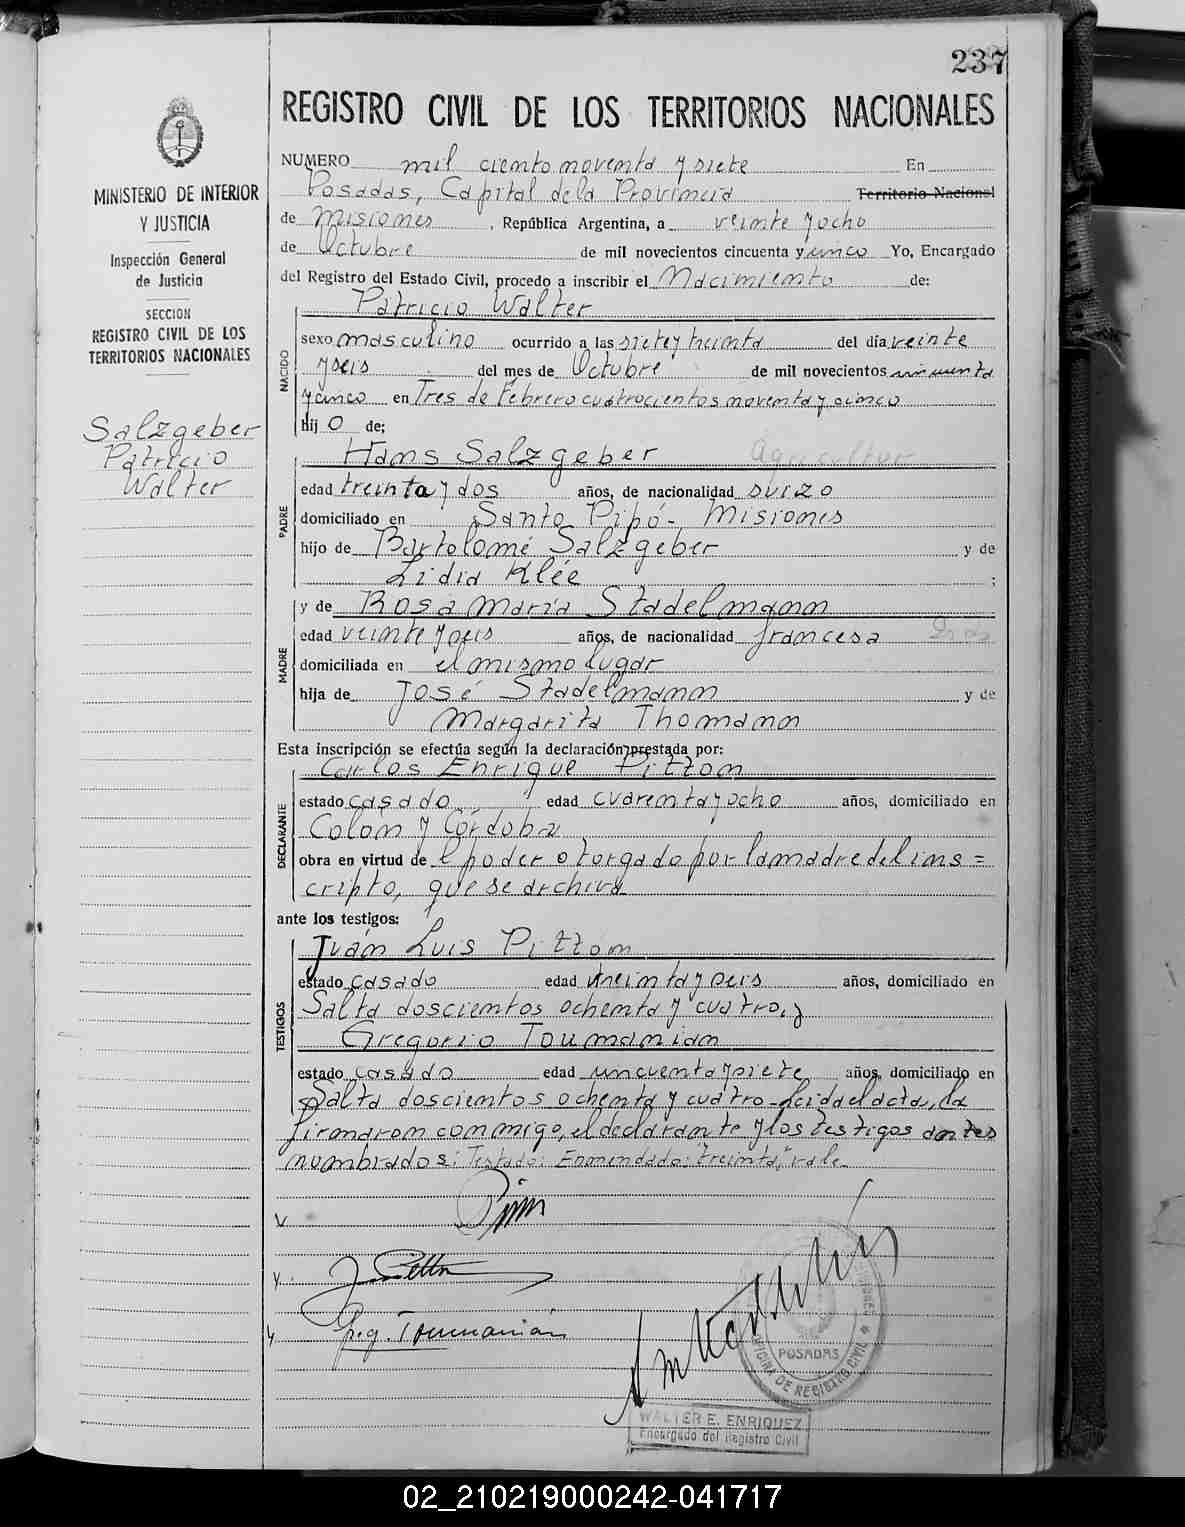 237
REGISTRO CIVIL DE LOS TERRITORIOS NACIONALES
MINISTERIO DE INTERIOR
Y JUSTICIA
Inspección General
de Justicia
SECCION
REGISTRO CIVIL DE LOS
TERRITORIOS NACIONALES
Salzgeber
Patricio
Walter
NUMERO mil ciento noventa y siete En
Posadas, Capital de la Provincia Territorio Nacional
de Misiones, República Argentina, a veinte y ocho
de Octubre de mil novecientos cincuenta y cinco Yo, Encargado
del Registro del Estado Civil, procedo a inscribir el Nacimiento de:
Patricio Walter
NACIDO
sexo masculino ocurrido a las siete y treinta del día veinte
y seis del mes de Octubre de mil novecientos cincuenta
y cinco en Tres de Febrero cuatrocientos noventa y cinco
hij o de;
Hans Salzgeber Agricultor
PADRE
edad treinta y dos años, de nacionalidad suizo
domiciliado en Santo Pipó- Misiones
hijo de Bartolomé Salzgeber y de
Lidia Klée ;
y de Rosa María Stadelmann
MADRE
edad veinte y seis años, de nacionalidad francesa
domiciliada en el mismo lugar
hija de José Stadelmann y de
Margarita Thomann
Esta inscripción se efectúa según la declaración prestada por:
Carlos Enrique Pitton
DECLARANTE
estado casado edad cuarenta y ocho años, domiciliado en
Colón y Córdoba
obra en virtud de l poder otorgado por la madre del ins=
cripto, que se archiva
ante los testigos:
Juán Luis Pitton
TESTIGOS
estado casado edad treinta y seis años, domiciliado en
Salta doscientos ochenta y cuatro, y
Gregorio Toumanian
estado casado edad cincuenta y siete años, domiciliado en
Salta doscientos ochenta y cuatro- Leida el acta, la
firmaron conmigo, el declarante y los testigos antes
nombrados: Testado: Enmendado: "treinta," vale-
Greg. Toumanian
POSADAS
OFICINA DE REGISTRO CIVIL
WALTER E. ENRIQUEZ
Encargado del Registro Civil
02_210219000242-041717